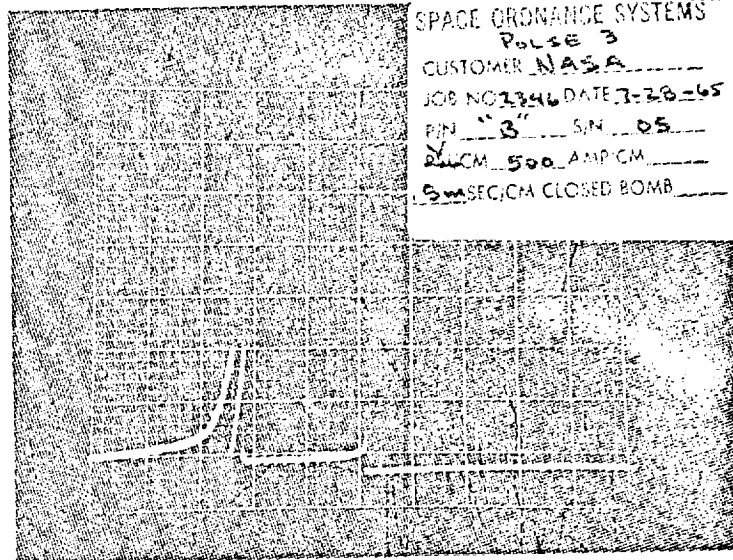 SPACE ORDNANCE SYSTEMS
PULSE 3
CUSTOMER NASA
JOB NO 2346 DATE 3-28-65
P/N "B" S/N 05
V/CM 500 AMP/CM
5mSEC/CM CLOSED BOMB